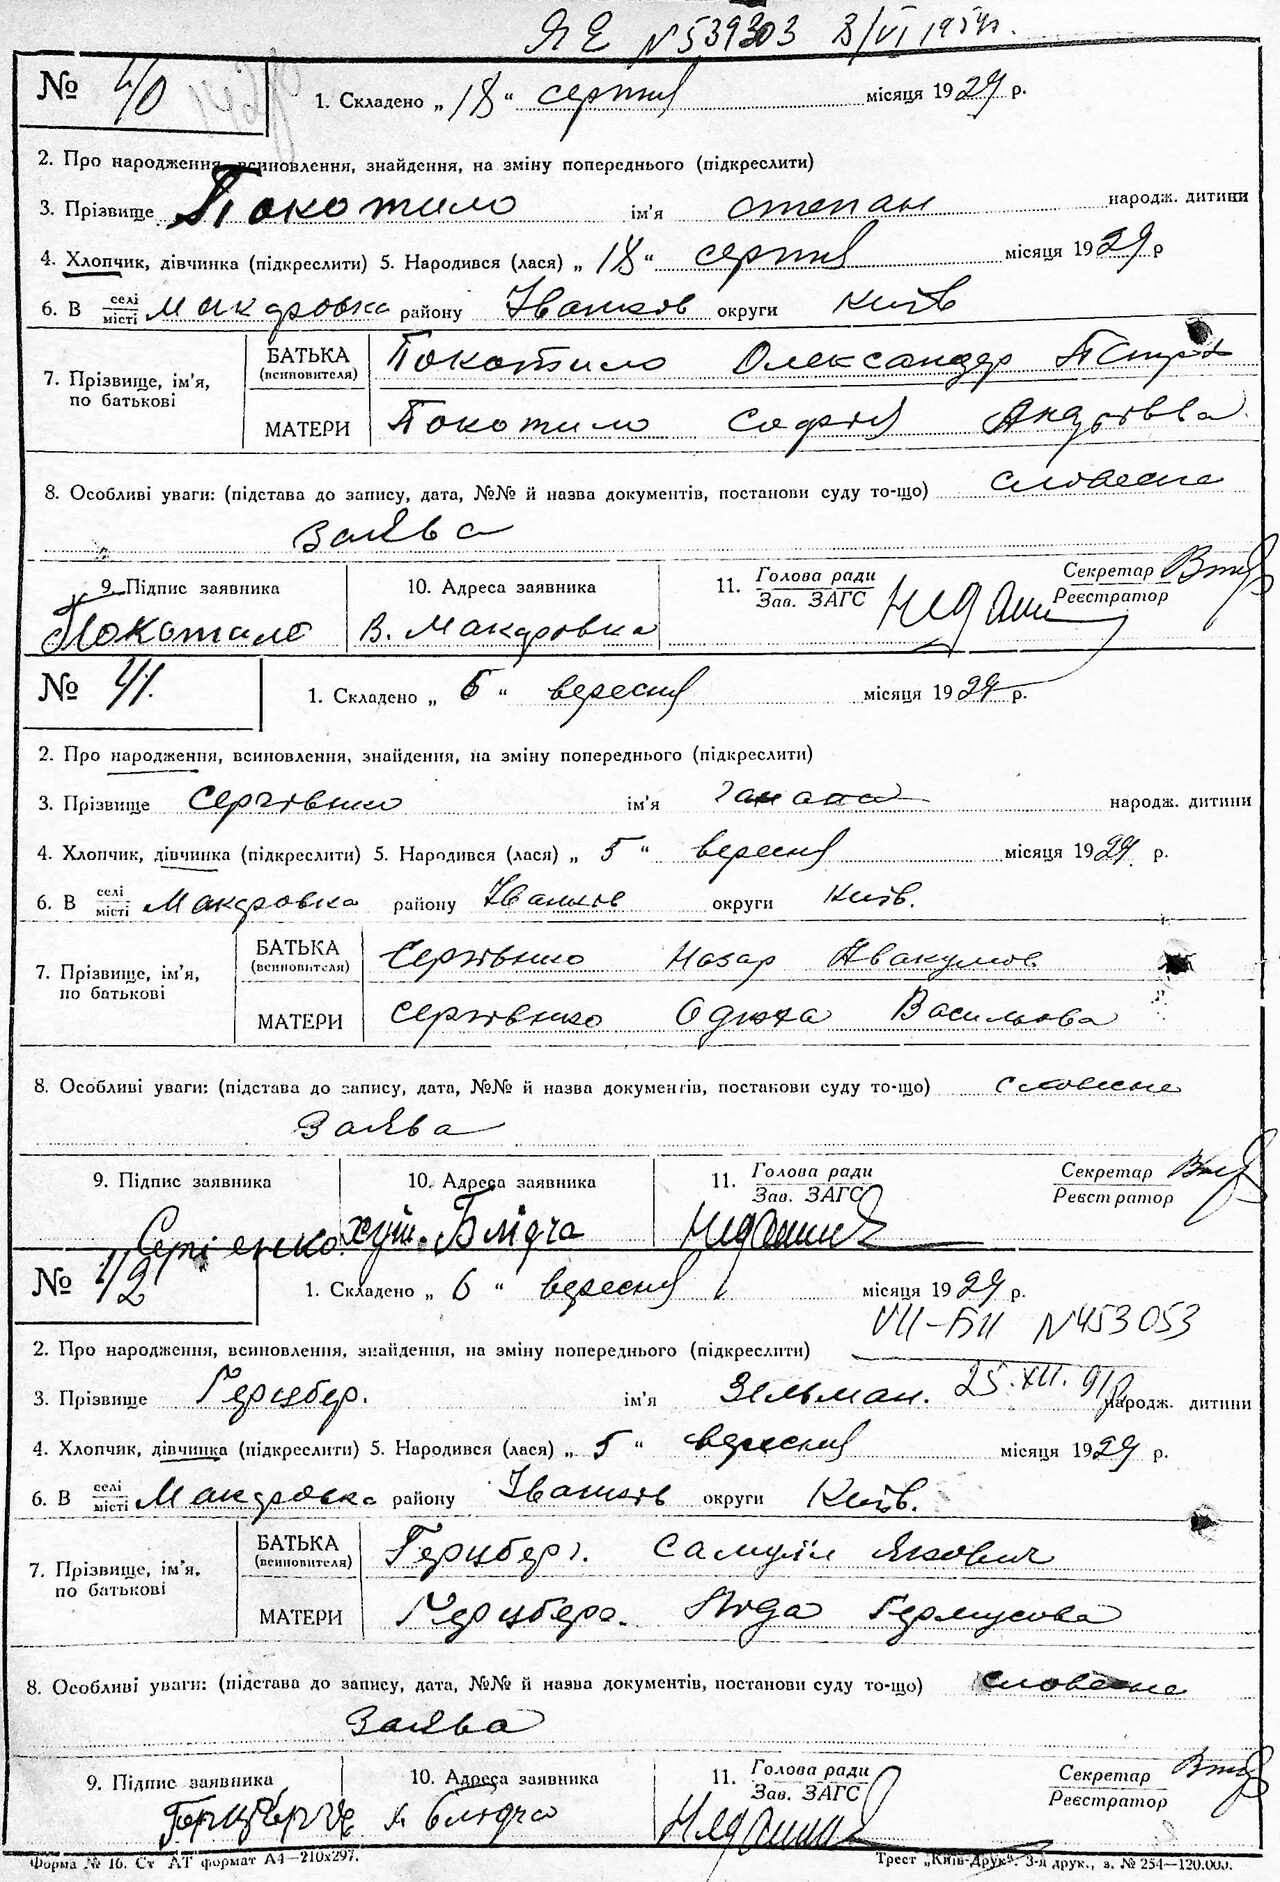 ЯЕ N 539303 3/VI 1954г.
№ 40 1. Складено „ 18 “ серпня місяця 1929 р.
2. Про народження, всиновлення, знайдення, на зміну попереднього (підкреслити)
3. Прізвище Покотило ім’я степан народж. дитини
4. Хлопчик, дівчинка (підкреслити) 5. Народився (лася) „ 18 “ серпня місяця 1929 р
6. В селі/місті Макаровка району Іванков округи Київ
7. Прізвище, ім’я, по батькові
БАТЬКА (всиновителя) Покотило Олександер
МАТЕРИ Покотило Софія Андрієвва
8. Особливі уваги: (підстава до запису, дата, №№ й назва документів, постанови суду то-що) словесне
заява
9. Підпис заявника 10. Адреса заявника 11. Голова ради / Зав. ЗАГС Секретар / Реєстратор
Покотило В. Макаровка
№ 41. 1. Складено „ 6 “ вересня місяця 1929 р.
2. Про народження, всиновлення, знайдення, на зміну попереднього (підкреслити)
3. Прізвище Сергієнко ім’я народж. дитини
4. Хлопчик, дівчинка (підкреслити) 5. Народився (лася) „ 5 “ вересня місяця 1929 р.
6. В селі/місті Макаровка району Іванков округи Київ.
7. Прізвище, ім’я, по батькові
БАТЬКА (всиновителя) Сергієнко Назар Авакумов
МАТЕРИ Сергієнко Васильова
8. Особливі уваги: (підстава до запису, дата, №№ й назва документів, постанови суду то-що) словесне
заява
9. Підпис заявника 10. Адреса заявника 11. Голова ради / Зав. ЗАГС Секретар / Реєстратор
Сергієнко хут. Блідча
№ 42 1. Складено „ 6 “ вересня місяця 1929 р.
VII-БИ N 453053
2. Про народження, всиновлення, знайдення, на зміну попереднього (підкреслити)
25.XII.
3. Прізвище Герцбер. ім’я Зельман. народж. дитини
4. Хлопчик, дівчинка (підкреслити) 5. Народився (лася) „ 5 “ вересня місяця 1929 р.
6. В селі/місті Макаровка району Іванков округи Київ.
7. Прізвище, ім’я, по батькові
БАТЬКА (всиновителя) Герцберг. Самуїл Якович
МАТЕРИ Герцберг.
8. Особливі уваги: (підстава до запису, дата, №№ й назва документів, постанови суду то-що) словесне
заява
9. Підпис заявника 10. Адреса заявника 11. Голова ради / Зав. ЗАГС Секретар / Реєстратор
х блідча
Форма № 16. Ст АТ формат А4—210х297. Трест „Київ-Друк“. 3-я друк., з. № 254—120.000.